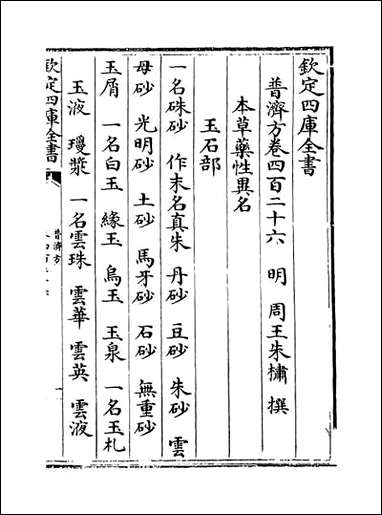 欽定四庫全書
普濟方卷四百二十六 明 周王朱橚 撰
本草藥性異名
玉石部
一名硃砂 作末名真朱 丹砂 豆砂 朱砂 雲
母砂 光明砂 土砂 馬牙砂 石砂 無重砂
玉屑 一名白玉 緣玉 烏玉 玉泉 一名玉札
玉液 瓊漿 一名雲珠 雲華 雲英 雲液
欽定四庫全書
普濟方
一